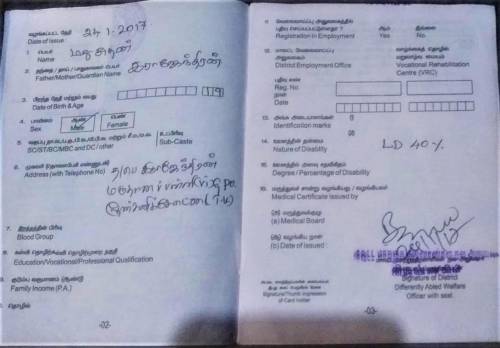 வழங்கப்பட்ட தேதி
Date of Issue : 24.1.2017
1. பெயர்
Name
மதுசுதன்
2. தந்தை / தாய் / பாதுகாவலர் பெயர்
Father/Mother/Guardian Name
இராஜேந்திரன்
3. பிறந்த தேதி மற்றும் வயது
Date of Birth & Age
19
4. பாலினம் ஆண் பெண்
Sex Male Female
உட்பிரிவு
5. SC/ST/BC/MBC and DC / other Sub-Caste
6. முகவரி (தொலைபேசி எண்ணுடன்)
Address (with Telephone No)
த/பெ இராஜேந்திரன்
7. இரத்தத்தின் பிரிவு
Blood Group
8.
Education/Vocational/Professional Qualification
9. குடும்ப வருமானம் (ஆண்டு)
Family Income (P.A.)
தொழில்
-02-
11. வேலைவாய்ப்பு அலுவலகத்தில்
பதிவு செய்யப்பட்டுள்ளதா ? ஆம் இல்லை
Registration in Employment Yes No
12. மாவட்ட வேலைவாய்ப்பு
அலுவலகம்
District Employment Office
வாழ்க்கைத் தொழில்
மறுவாழ்வு மையம்
Vocational Rehabilitation
Centre (VRC)
பதிவு எண்
Reg. No.
நாள்
Date
13. அங்க அடையாளங்கள்
Identification marks
14. ஊனத்தின் தன்மை
Nature of Disability
LD 40%
15. ஊனத்தின் அளவு சதவிகிதம்
Degree / Percentage of Disability
16. மருத்துவச் சான்று வழங்கியது / வழங்கியவர்
Medical Certificate issued by
(அ) மருத்துவக்குழு
(a) Medical Board
(ஆ) வழங்கிய நாள்
(b) Date of issued :
Signature/Thumb impression
of Card holder
Signature of District
Differently Abled Welfare
Officer with seal.
-03-